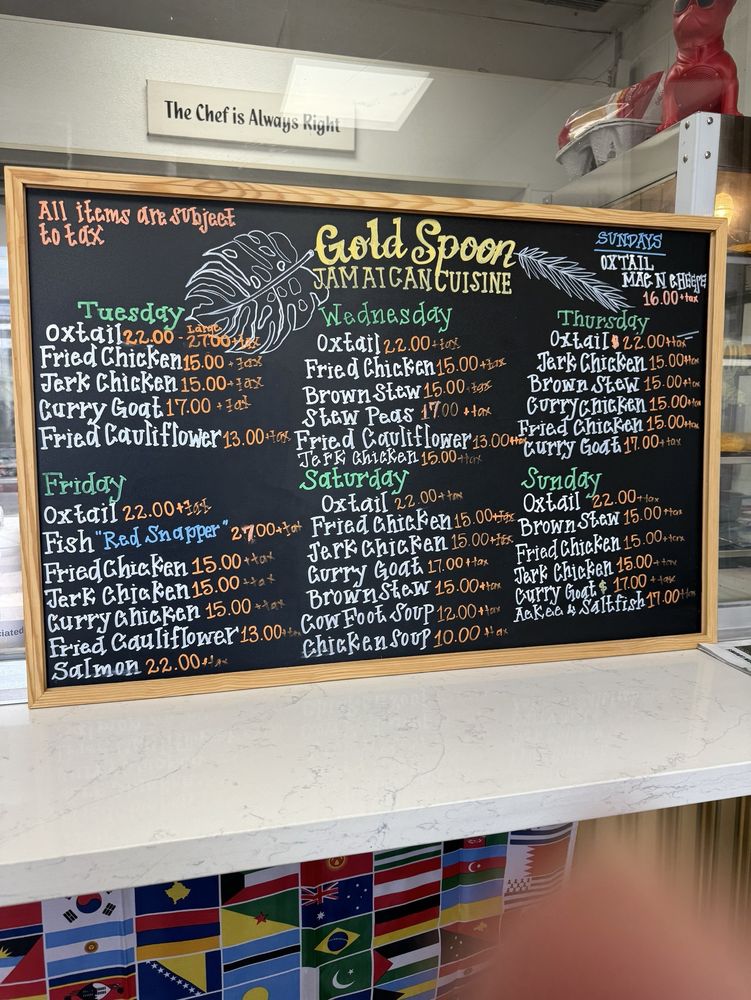 The Chef is Always Right
All items are subject
to tax
Gold Spoon
JAMAICAN CUISINE
SUNDAYS
OXTAIL
MAC N CHEESE
16.00+tax
Tuesday
Oxtail 22.00 - Large 27.00+tax
Fried Chicken 15.00 +tax
Jerk Chicken 15.00 +tax
Curry Goat 17.00 +tax
Fried Cauliflower 13.00+tax
Wednesday
Oxtail 22.00 +tax
Fried Chicken 15.00+tax
Brown Stew 15.00 +tax
Stew Peas 17.00 +tax
Fried Cauliflower 13.00+tax
Jerk Chicken 15.00 +tax
Thursday
Oxtail $ 22.00+tax
Jerk Chicken 15.00+tax
Brown Stew 15.00 +tax
Curry Chicken 15.00+tax
Fried Chicken 15.00+tax
Curry Goat 17.00+tax
Friday
Oxtail 22.00+tax
Fish "Red Snapper" 27.00+tax
Fried Chicken 15.00 +tax
Jerk Chicken 15.00 +tax
Curry Chicken 15.00 +tax
Fried Cauliflower 13.00+tax
Salmon 22.00+tax
Saturday
Oxtail 22.00 +tax
Fried Chicken 15.00+tax
Jerk Chicken 15.00+tax
Curry Goat 17.00+tax
Brown Stew 15.00+tax
Cow Foot Soup 12.00+tax
Chicken Soup 10.00 +tax
Sunday
Oxtail 22.00+tax
Brown Stew 15.00 +tax
Fried Chicken 15.00+tax
Jerk Chicken 15.00+tax
Curry Goat $ 17.00 +tax
Ackee & Saltfish 17.00+tax